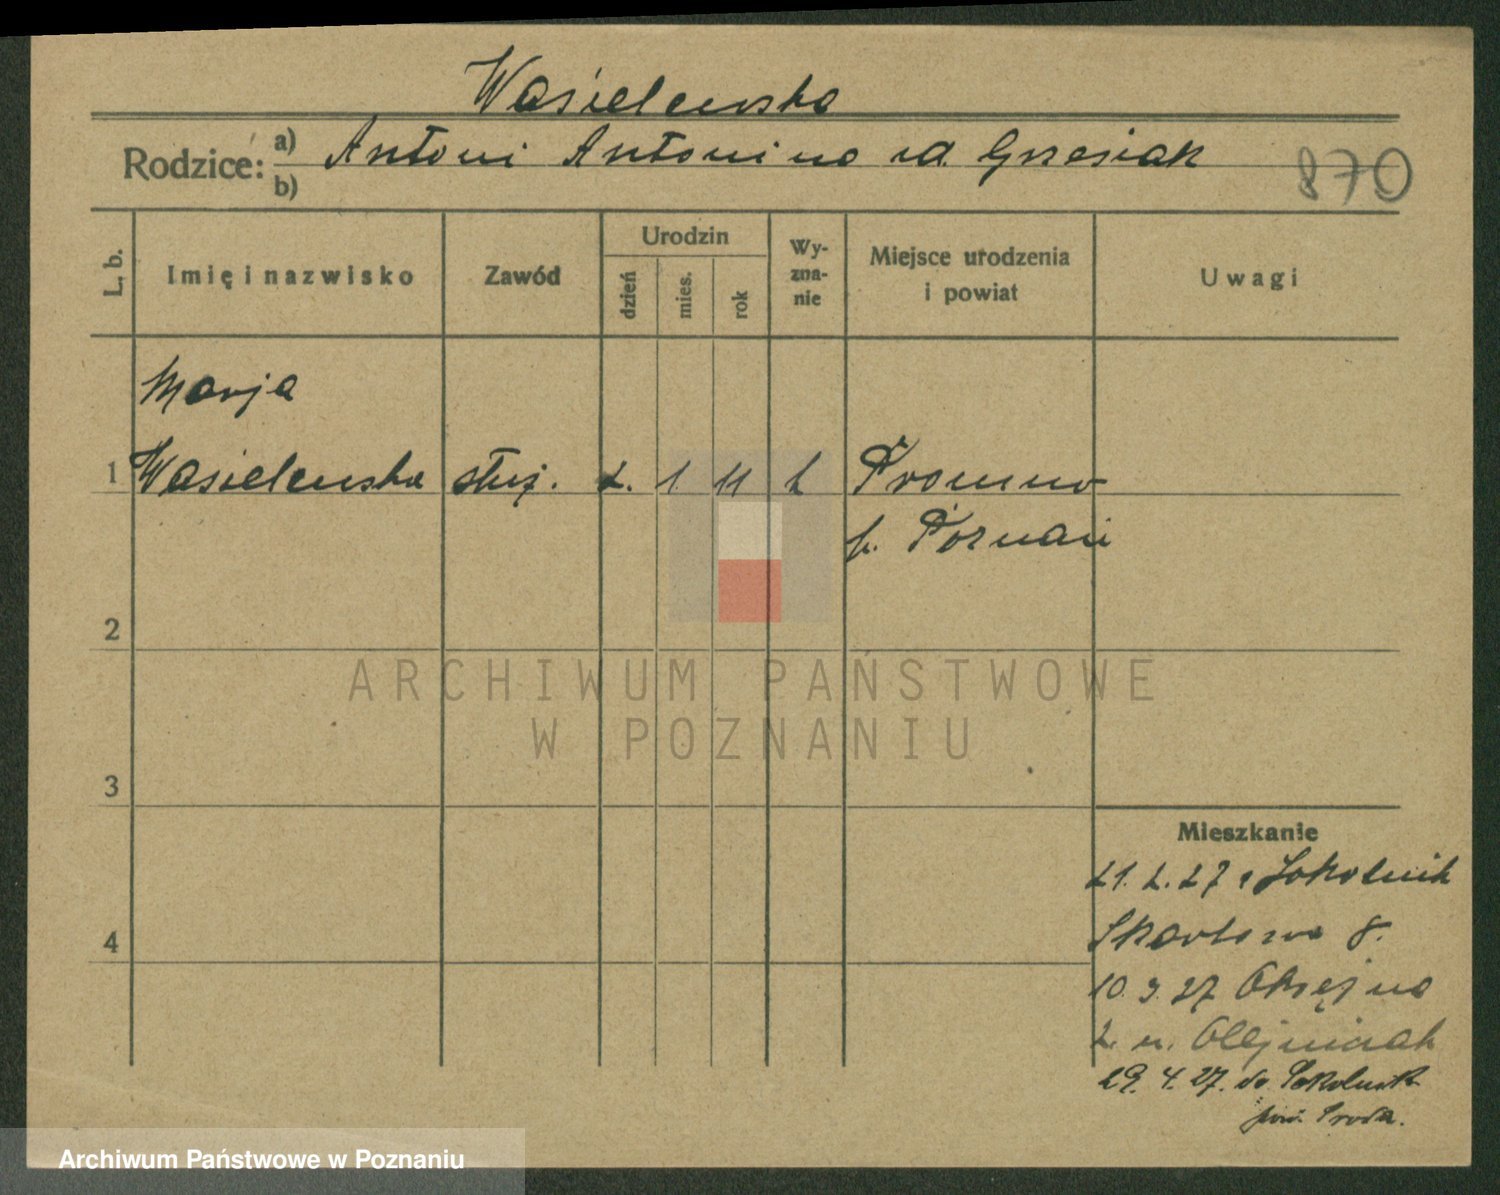 Wasielewska
Rodzice: a) Antoni Antonina z d. Grzesiak
b)
870
L. b.
Imię i nazwisko
Zawód
Urodzin
dzień
mies.
rok
Wy-
zna-
nie
Miejsce urodzenia
i powiat
Uwagi
Marja
1 Wasielewska służ. 2. 1. 11 k Promno
p. Poznań
2
ARCHIWUM PAŃSTWOWE
W POZNANIU
3
Mieszkanie
21. 2. 27 z Sokolnik
4
Skarbowa 8.
10. 3. 27 Okrężna
2. u. Olejniczak
29. 4. 27. do Sokolnik
pow. Środa.
Archiwum Państwowe w Poznaniu